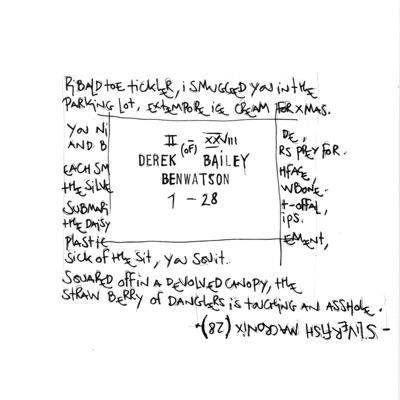 RIBALD TOE TICKLER, I SMUGGLED YOU IN THE
PARKING LOT, EXTEMPORE ICE CREAM FOR XMAS.
YOU NI
AND B
EACH SM
THE SILVE
SUBMARI
THE DAISY
PLASTIC
II (OF) XXVIII
DEREK BAILEY
BENWATSON
1 - 28
DE,
RS PREY FOR.
HFACE,
WBONE.
T-OFFAL,
IPS.
EMENT,
SICK OF THE SIT, YOU
SQUARED OFF IN A DEVOLVED CANOPY, THE
STRAWBERRY OF DANGLERS IS TOUCHING AN ASSHOLE.
- SILVERFISH MACRONIX (28)-